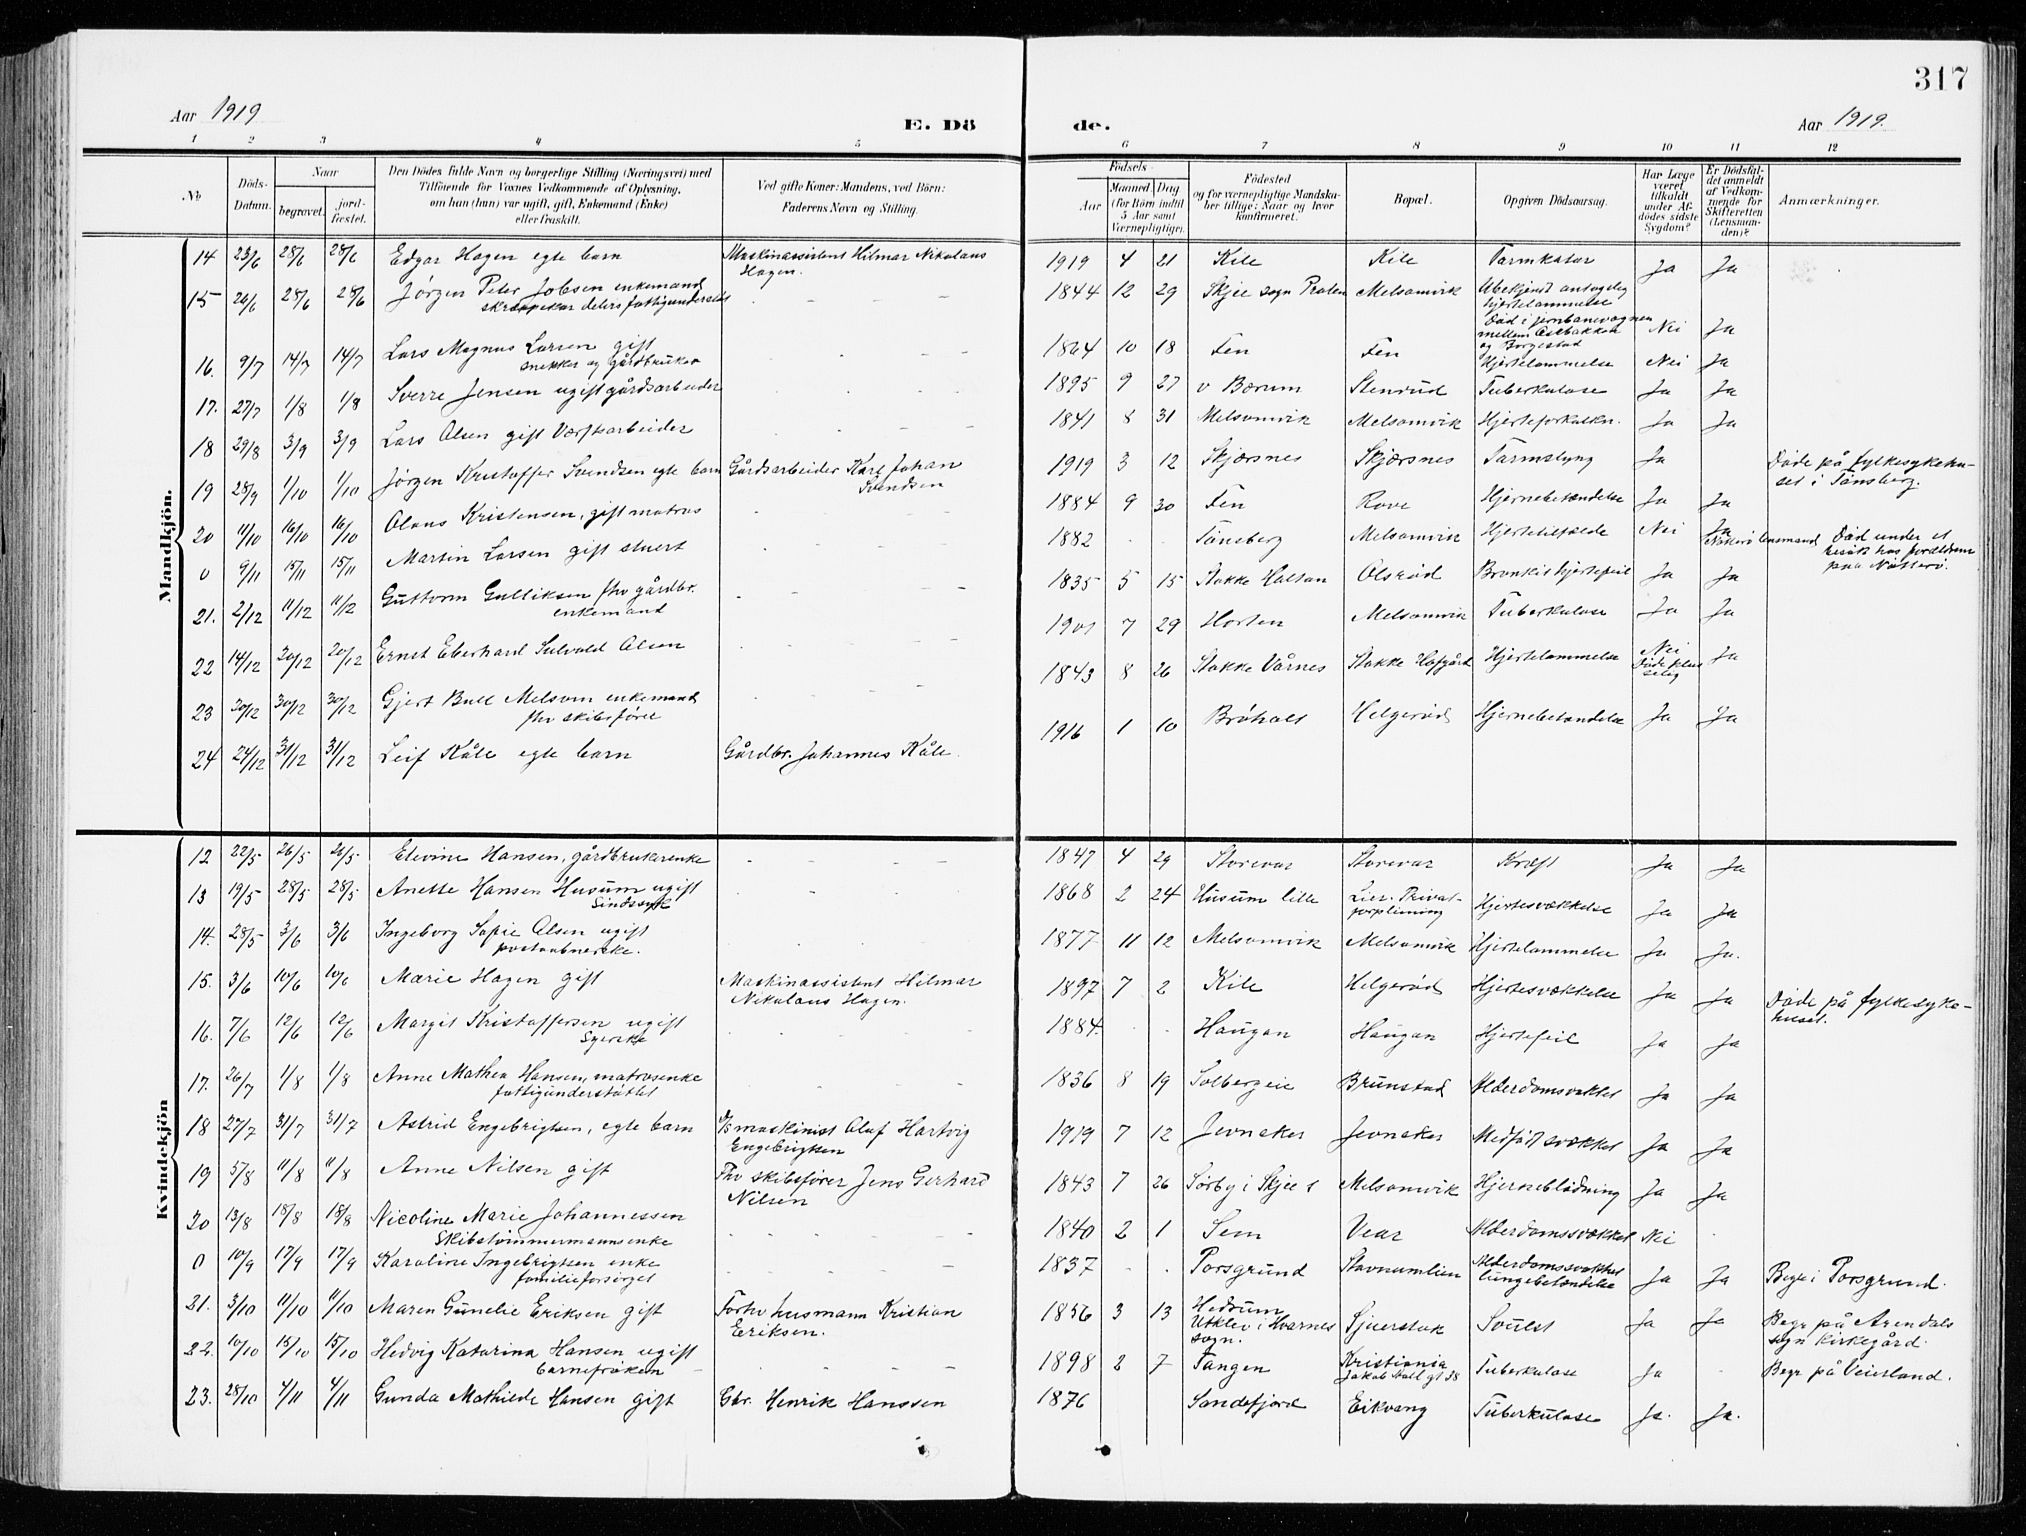 317
Aar 1919 E. Dö de. Aar 1919.
1 2 3 4 5 6 7 8 9 10 11 12
No
Döds-Datum.
Naar
begravet.
jordfæstet.
Den Dödes fulde Navn og borgerlige Stilling (Næringsvei) med
Tilföiende for Voxnes Vedkommende af Oplysning,
om han (hun) var ugift, gift, Enkemand (Enke)
eller fraskilt.
Ved gifte Koner: Mandens, ved Börn:
Faderens Navn og Stilling.
Födsels-
Aar
Maaned. Dag
(for Börn indtil
5 Aar samt
Værnepligtige).
Födested
og for værnepligtige Mandska-
ber tillige: Naar og hvor
konfirmeret.
Bopæl.
Opgiven Dödsaarsag.
Har Læge
været
tilkaldt
under Af-
dödes sidste
Sygdom?
Er Dödsfal-
det anmeldt
af Vedkom-
mende for
Skifteretten
(Lensman-
den)?
Anmærkninger.
Mandkjön.
14 23/6 28/6 28/6 Edgar Hagen egte barn Maskinassistent Hilmar Nikolaus Hagen. 1919 4 21 Kile Kile Tarmkatar Ja Ja
15 26/6 28/6 28/6 Jörgen Peter Jobsen enkemand skræppekar delvis fattigunderst 1844 12 29 Skjee sogn Melsomvik Ubekjend antagelig hjertelammelse Nei Ja
16. 9/7 14/7 14/7 Lars Magnus Larsen gift snekker og gårdbruker 1864 10 18 Fen Fen Död i jernbanevognen mellem Osebakken og Borgestad Hjertelammelse Nei Ja
17. 27/7 1/8 1/8 Sverre Jensen ugift gårdsarbeider 1895 9 27 v Bærum Stenrud Tuberkulose Ja Ja
18 29/8 3/9 3/9 Lars Olsen gift Værftsarbeider 1841 8 31 Melsomvik Melsomvik Hjerteforkalkn. Ja Ja
19 28/9 1/10 1/10 Jörgen Kristoffer Svendsen egte barn Gårdsarbeider Karl Johan Svendsen 1919 3 12 Skjærsnes Skjærsnes Tarmslyng Ja Döde på fylkesykehuset i Tönsberg.
20 11/10 16/10 16/10 Olaus Kristensen, gift matros 1884 9 30 Fen Rove Hjernebetændelse Ja Ja
0 9/11 15/11 15/11 Martin Larsen gift stuert 1882 Tönsberg Melsomvik Hjertetilfælde Nei Ja Nötterö lensmand Död under et besök hos forældrene paa Nötterö.
21. 2/12 11/12 11/12 Guttorm Gulliksen fhv gårdbr. enkemand 1835 5 15 Stokke Holtan Olsröd Bronkit hjertefeil Ja Ja
22 14/12 20/12 20/12 Ernst Eberhard Sulvold Olsen 1901 7 29 Horten Melsomvik Tuberkulose Ja Ja
23 20/12 30/12 30/12 Gjert Bull Melsom enkemand fhv skibsförer 1843 8 26 Stokke Vårnes Stokke Hofgård Hjertelammelse Nei Döde pludselig Ja
24 24/12 31/12 31/12 Leif Kåle egte barn Gårdbr. Johannes Kåle. 1916 1 10 Bråholt Helgeröd Hjernebetændelse Ja Ja
Kvindekjön
12 22/5 26/5 26/5 Elevine Hansen, gårdbrukerenke 1847 4 29 Storevar Storevar Kræft Ja Ja
13 19/5 28/5 28/5 Anette Hansen Husum ugift Sindssyk 1868 2 24 Husum lille Lier. Privatforpleining Hjertesvækkelse Ja Ja
14. 28/5 3/6 3/6 Ingeborg Sofie Olsen ugift postaabnerske. 1877 11 12 Melsomvik Melsomvik Hjertelammelse Ja Ja.
15. 3/6 10/6 10/6 Marie Hagen gift Maskinassistent Hilmar Nikolaus Hagen. 1897 7 2 Kile Helgeröd Hjertesvækkelse Ja Ja Döde på fylkesykehuset.
16. 7/6 12/6 12/6 Margit Kristoffersen ugift Syerske 1884. Haugan Haugan Hjertefeil Ja Ja
17. 26/7 1/8 1/8 Anne Mathea Hansen, matrosenke fattigunderstöttet 1836 8 19 Solbergeie Brunstad Alderdomssvækket Ja Ja
18 27/7 31/7 31/7 Astrid Engebrigtsen, egte barn maskinist Olaf Hartvig Engebrigtsen 1919 7 12 Jevnaker Jevnaker Medfödt svækket Ja Ja
19 5/8 11/8 11/8 Anne Nilsen gift Fhv skibsförer Jens Gerhard Nilsen 1843 7 26 Sörby i Skjee s Melsomvik Hjerneblödning Ja Ja
20 13/8 18/8 18/8 Nicoline Marie Johannessen Skibstömmermannsenke 1840 2 1 Sem Vear Alderdomssvækket Nei
0 10/9 17/9 17/9 Karoline Ingebrigtsen enke familieforsörget 1837 Porsgrund Stavnumlien Alderdomssvækket lungebetændelse Ja Ja Begr i Porsgrund.
21. 3/10 11/10 11/10 Maren Gunelie Eriksen gift Forhv husmann Kristian Eriksen. 1856 3 13 Hedrum Utklev i Hvarnes sogn. Sjuerstok Svulst Ja Ja Begr på Arendals sogn kirkegård.
22. 10/10 15/10 15/10 Hedvig Katarina Hansen ugift barnefröken 1898 2 7 Tangen Kristiania Jakob Aall gt 38 Tuberkulose Ja Begr på Veierland.
23. 28/10 4/11 4/11 Gunda Mathilde Hansen gift Gbr. Henrik Hanssen 1876 Sandefjord Eikvang Tuberkulose Ja. Ja.